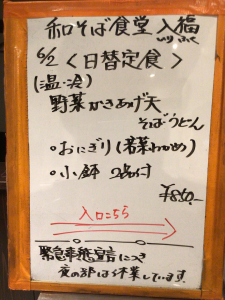 和そば食堂 入福
いりふく
6/2 <日替定食>
(温・冷)
野菜かきあげ天
そばうどん
・おにぎり(若菜わかめ)
・小鉢 2品付
¥850-
入口こちら
緊急事態宣言につき
夜の部はお休業しています